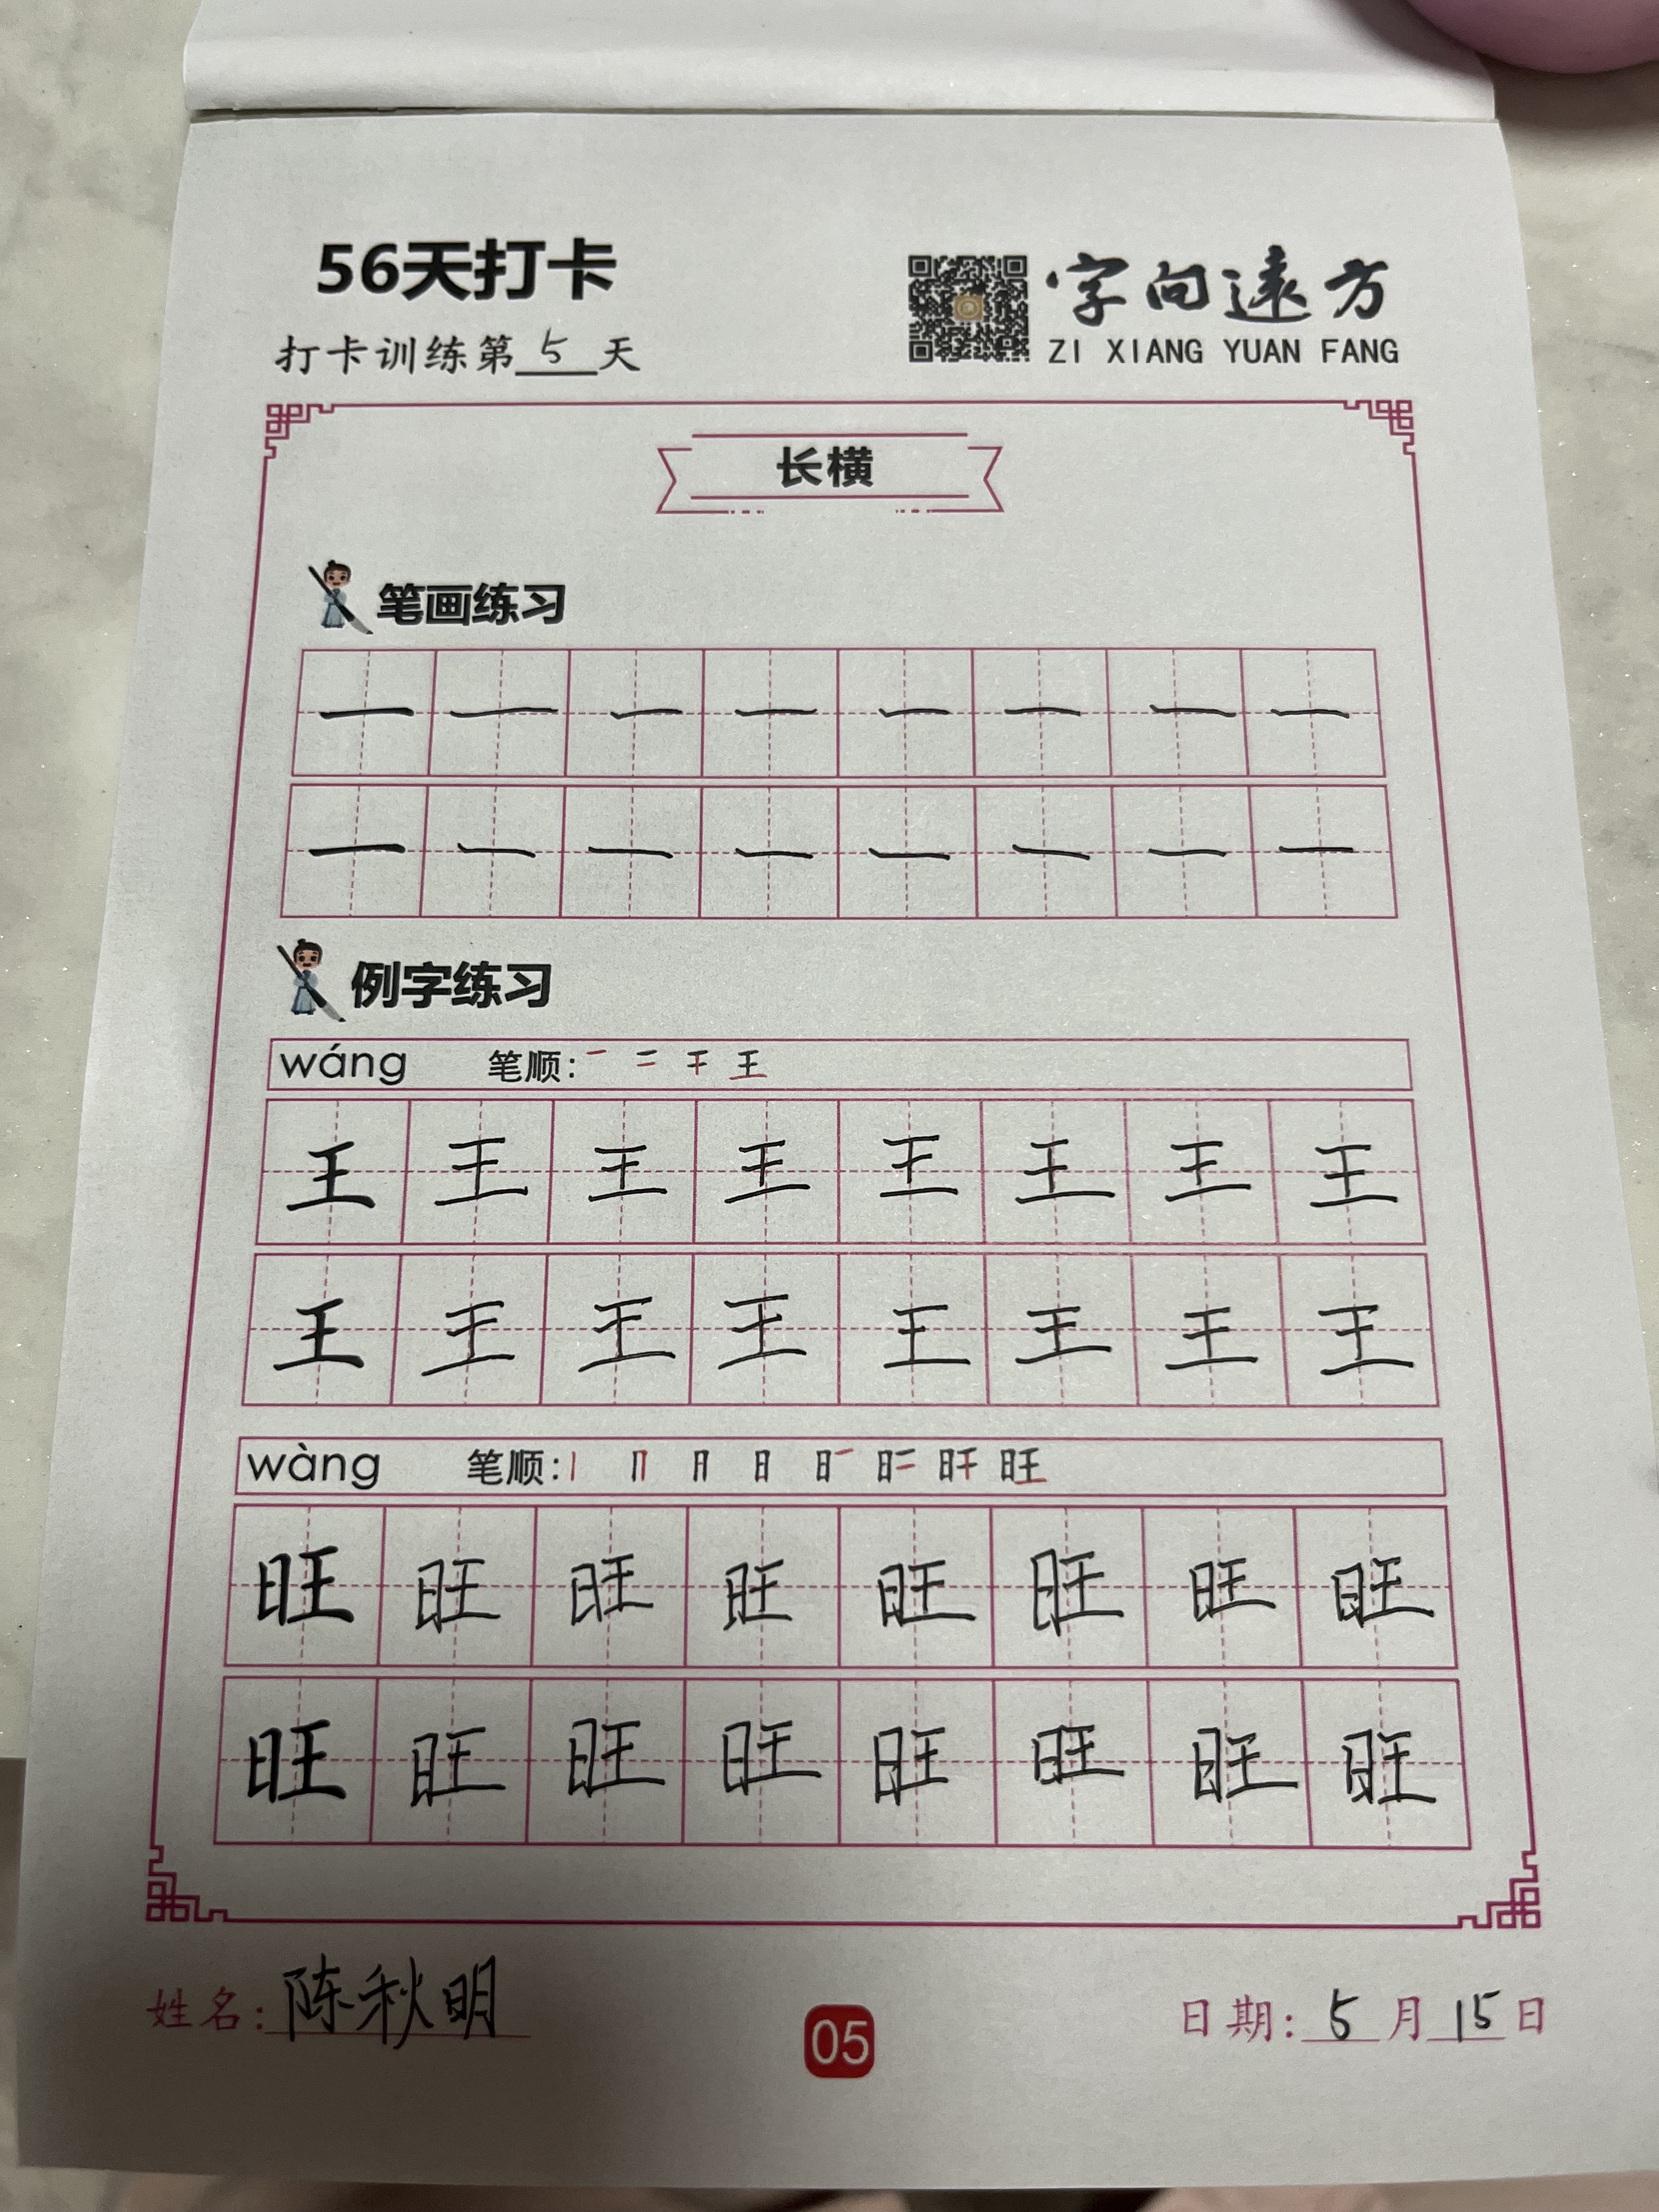 56天打卡
字向遠方
打卡训练第5天
ZI XIANG YUAN FANG
长横
笔画练习
一 一 一 一 一 一 一 一
一 一 一 一 一 一 一 一
例字练习
wáng 笔顺: 一 二 干 王
王 王 王 王 王 王 王 王
王 王 王 王 王 王 王 王
wàng 笔顺: 旺
旺 旺 旺 旺 旺 旺 旺 旺
旺 旺 旺 旺 旺 旺 旺 旺
姓名: 陈秋明
05
日期: 5月15日